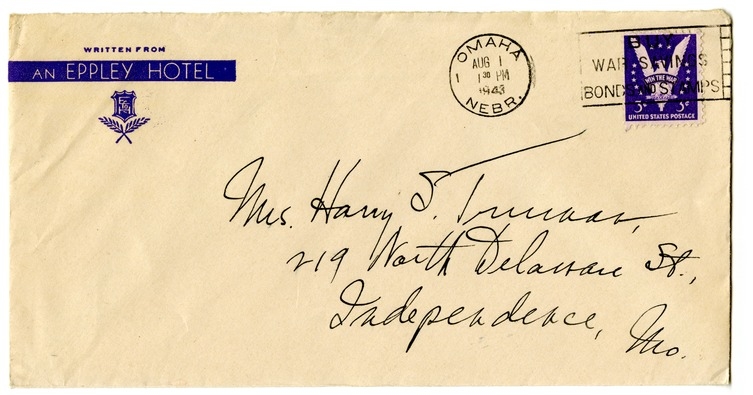 WRITTEN FROM
AN EPPLEY HOTEL
OMAHA
AUG 1
1 30 PM
1943
NEBR.
BUY
WAR SAVINGS
BONDS AND STAMPS
WIN THE WAR
3¢ 3¢
UNITED STATES POSTAGE
Mrs. Harry S. Truman,
219 North Delaware St.,
Independence,
Mo.